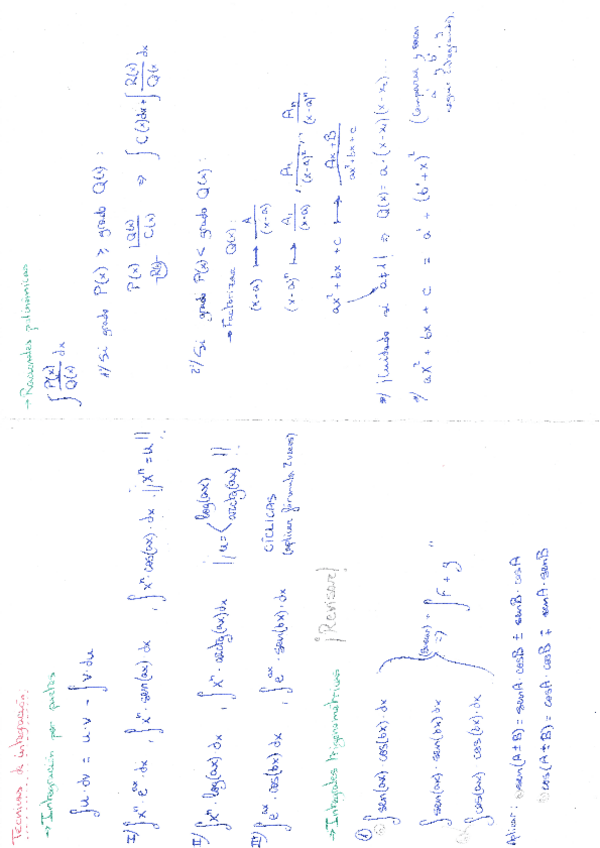 Técnicas de integración
→ Integración por partes
∫u·dv = u·v - ∫v·du
I/ ∫xⁿ·e^ax·dx , ∫xⁿ·sen(ax) dx , ∫xⁿ·cos(ax)·dx · ¡¡xⁿ = u!!
II/ ∫xⁿ·log(ax) dx , ∫xⁿ·arctg(ax) dx ¡¡u = < log(ax) arctg(ax) !!
III/ ∫e^ax·cos(bx) dx , ∫e^ax·sen(bx)·dx CÍCLICAS
(aplicar fórmula 2 veces)
→ Integrales trigonométricas ¡Revisar!
① ∫sen(ax)·cos(bx)·dx
∫sen(ax)·sen(bx) dx
∫cos(ax)·cos(bx)·dx
⇒ ∫F + g
Aplicar: sen(A±B) = senA·cosB ± senB·cosA
cos(A±B) = cosA·cosB ∓ senA·senB
→ Racionales polinómicas
∫ P(x)/Q(x) dx
1º/ Si grado P(x) ≥ grado Q(x):
P(x) |Q(x)
R(x) C(x) ⇒ ∫C(x)dx + ∫ R(x)/Q(x) dx
2º/ Si grado P(x) < grado Q(x):
→ Factorizar Q(x):
(x-a) ↦ A/(x-a)
(x-a)ⁿ ↦ A₁/(x-a) , A₂/(x-a)² , ... Aₙ/(x-a)ⁿ
ax² + bx + c ↦ Ax + B/ax²+bx+c
¡Cuidado si a≠1! ⇒ Q(x) = a·(x-x₁)(x-x₂)...
ax² + bx + c = a' + (b'+x)² (Comparar y sacar a' y b', y